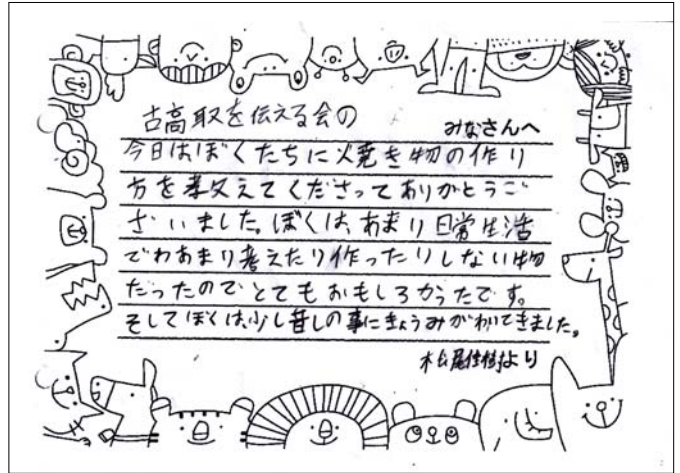 古高取を伝える会の
みなさんへ
今日はぼくたちに焼き物の作り
方を教えてくださってありがとうご
ざいました。ぼくは、あまり日常生活
でわあまり考えたり作ったりしない物
だったのでとてもおもしろかったです。
そしてぼくは、少し昔しの事にきょうみがわいてきました。
松尾佳樹より